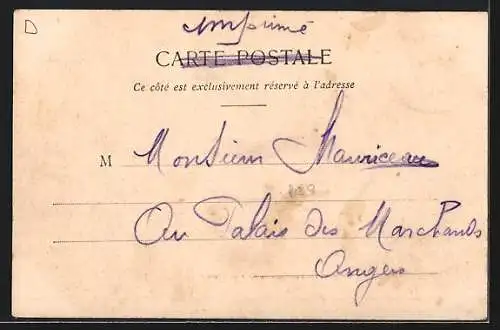 D
imprimé
CARTE POSTALE
Ce côté est exclusivement réservé à l'adresse
M Monsieur Mauriceau
Au Palais des Marchands
Angers